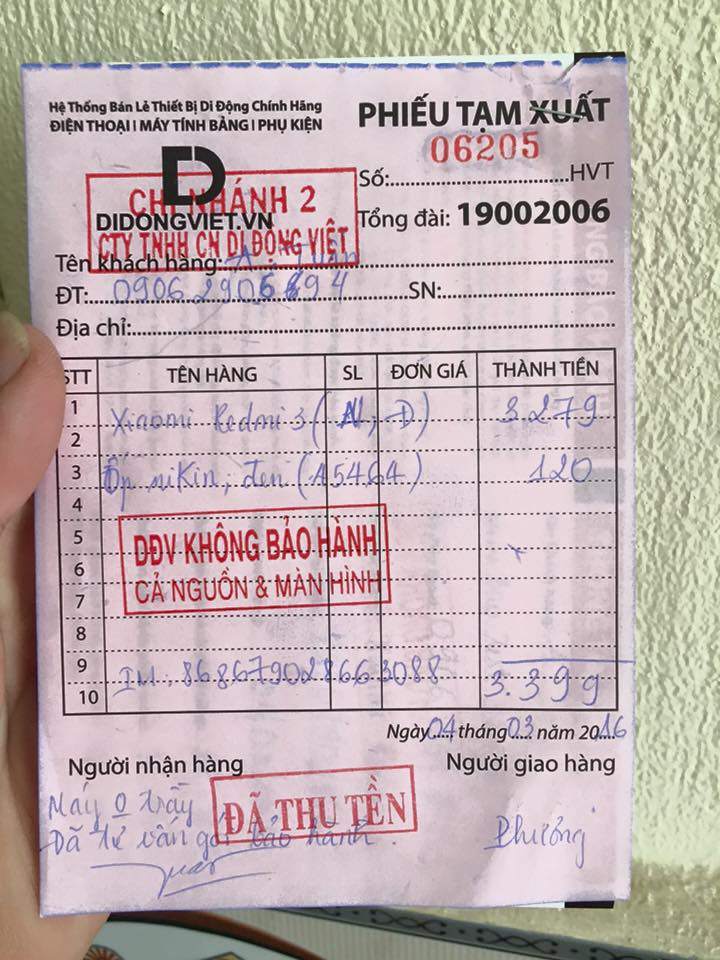 Hệ Thống Bán Lẻ Thiết Bị Di Động Chính Hãng
ĐIỆN THOẠI I MÁY TÍNH BẢNG I PHỤ KIỆN
PHIẾU TẠM XUẤT
06205
Số:..............................HVT
CHI NHÁNH 2
DIDONGVIET.VN
CTY TNHH CN DI ĐỘNG VIỆT
Tổng đài: 19002006
Tên khách hàng: A. Tuấn
ĐT: SN:
Địa chỉ:
STT TÊN HÀNG SL ĐƠN GIÁ THÀNH TIỀN
1 Xiaomi Redmi 3 ( 3.279
2
3 Ốp nikin, đen (A5464) 120
4
5 DĐV KHÔNG BẢO HÀNH
6 CẢ NGUỒN & MÀN HÌNH
7
8
9 IM: 868679028663088
10 3.399
Ngày 04 tháng 03 năm 2016
Người nhận hàng Người giao hàng
Máy 0 trầy
Đã tư vấn gói bảo hành.
ĐÃ THU TỀN
Phương